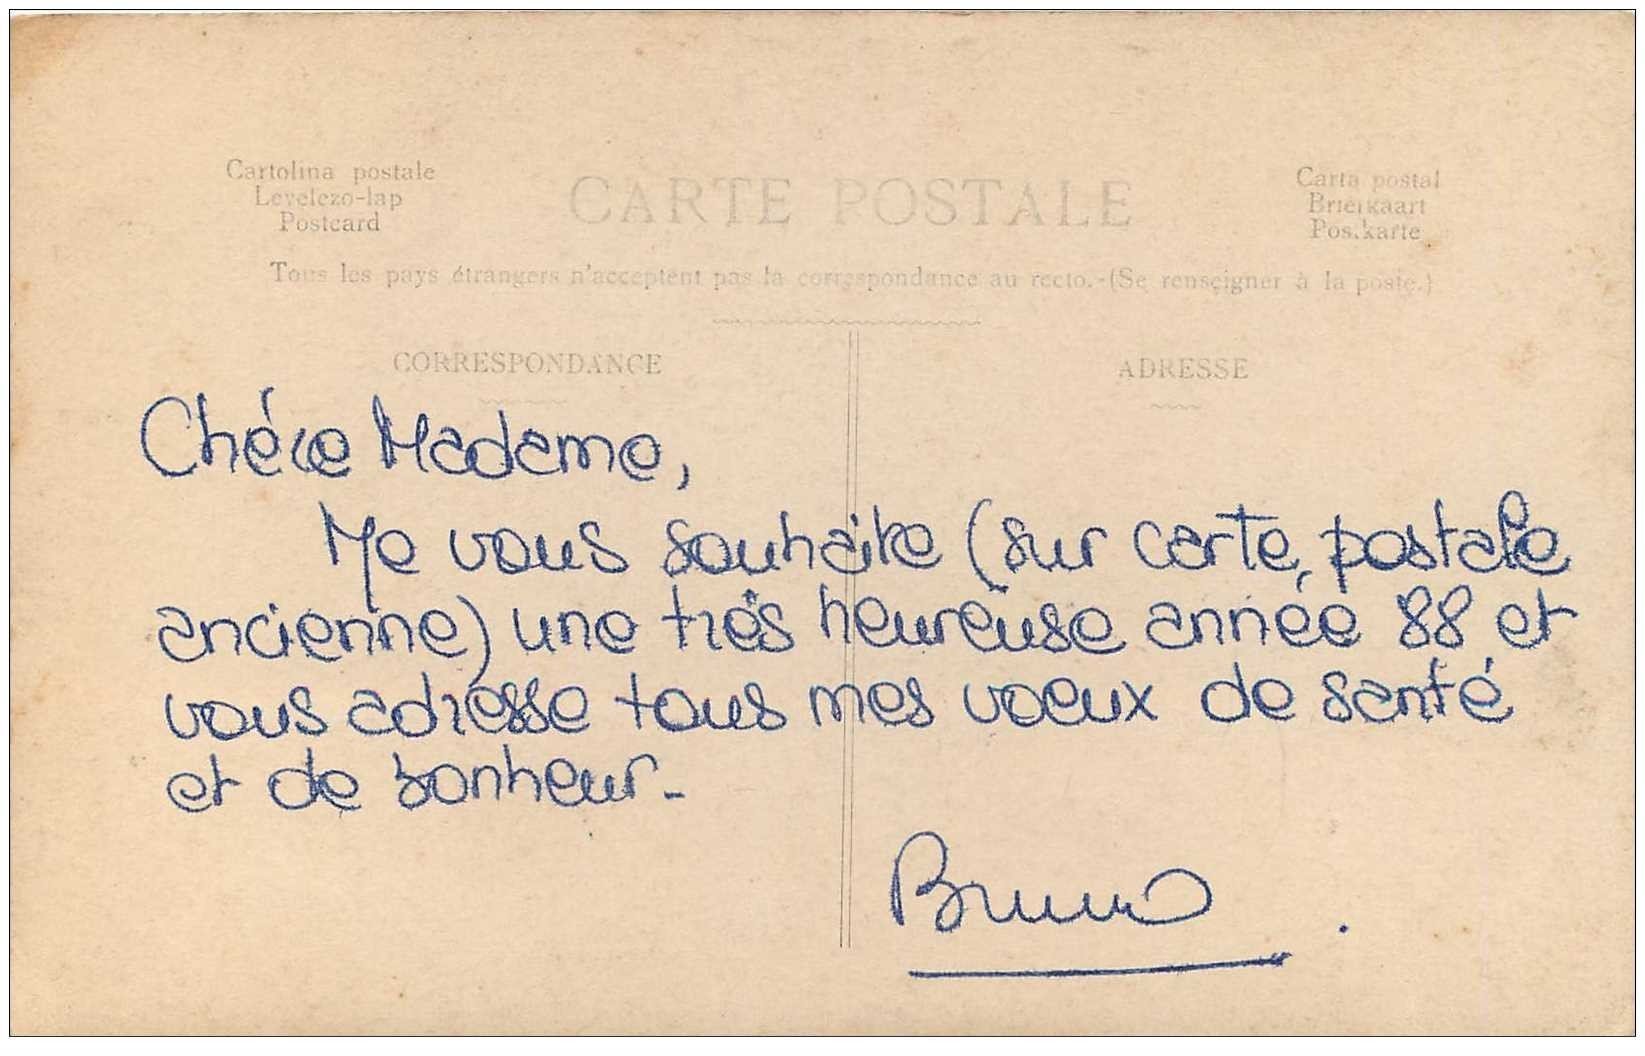 Cartolina postale
Levelezo-lap
Postcard
CARTE POSTALE
Carta postal
Briefkaart
Postkarte
Tous les pays étrangers n'acceptent pas la correspondance au recto.-(Se renseigner à la poste.)
CORRESPONDANCE
ADRESSE
Chére Madame,
Je vous souhaite (sur carte postale
ancienne) une très heureuse année 88 et
vous adresse tous mes voeux de santé
et de bonheur.
Bruno.